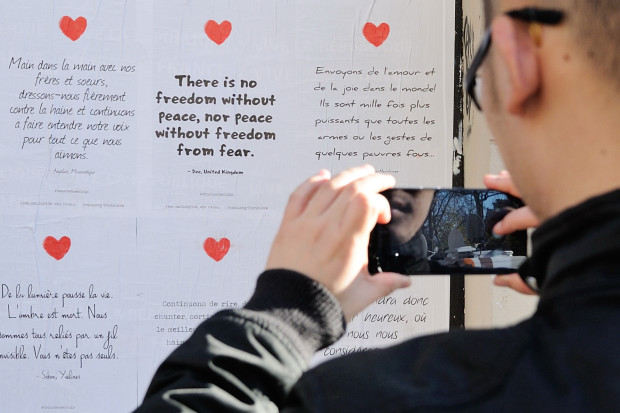 Main dans la main avec nos
frères et soeurs,
dressons-nous fièrement
contre la haine et continuons
a faire entendre notre voix
pour tout ce que nous
aimons.
There is no
freedom without
peace, nor peace
without freedom
from fear.
- Dee, United Kingdom
Envoyons de l'amour et
de la joie dans le monde!
Ils sont mille fois plus
puissants que toutes les
armes ou les gestes de
quelques pauvres fous..
De la lumière pousse la vie.
L'ombre est mort. Nous
sommes tous reliés par un fil
invisible. Vous n'êtes pas seuls.
Continuons de rire, d
chanter, sortir
le meilleur
haine
dra donc
heureux, où
nous nous
considér